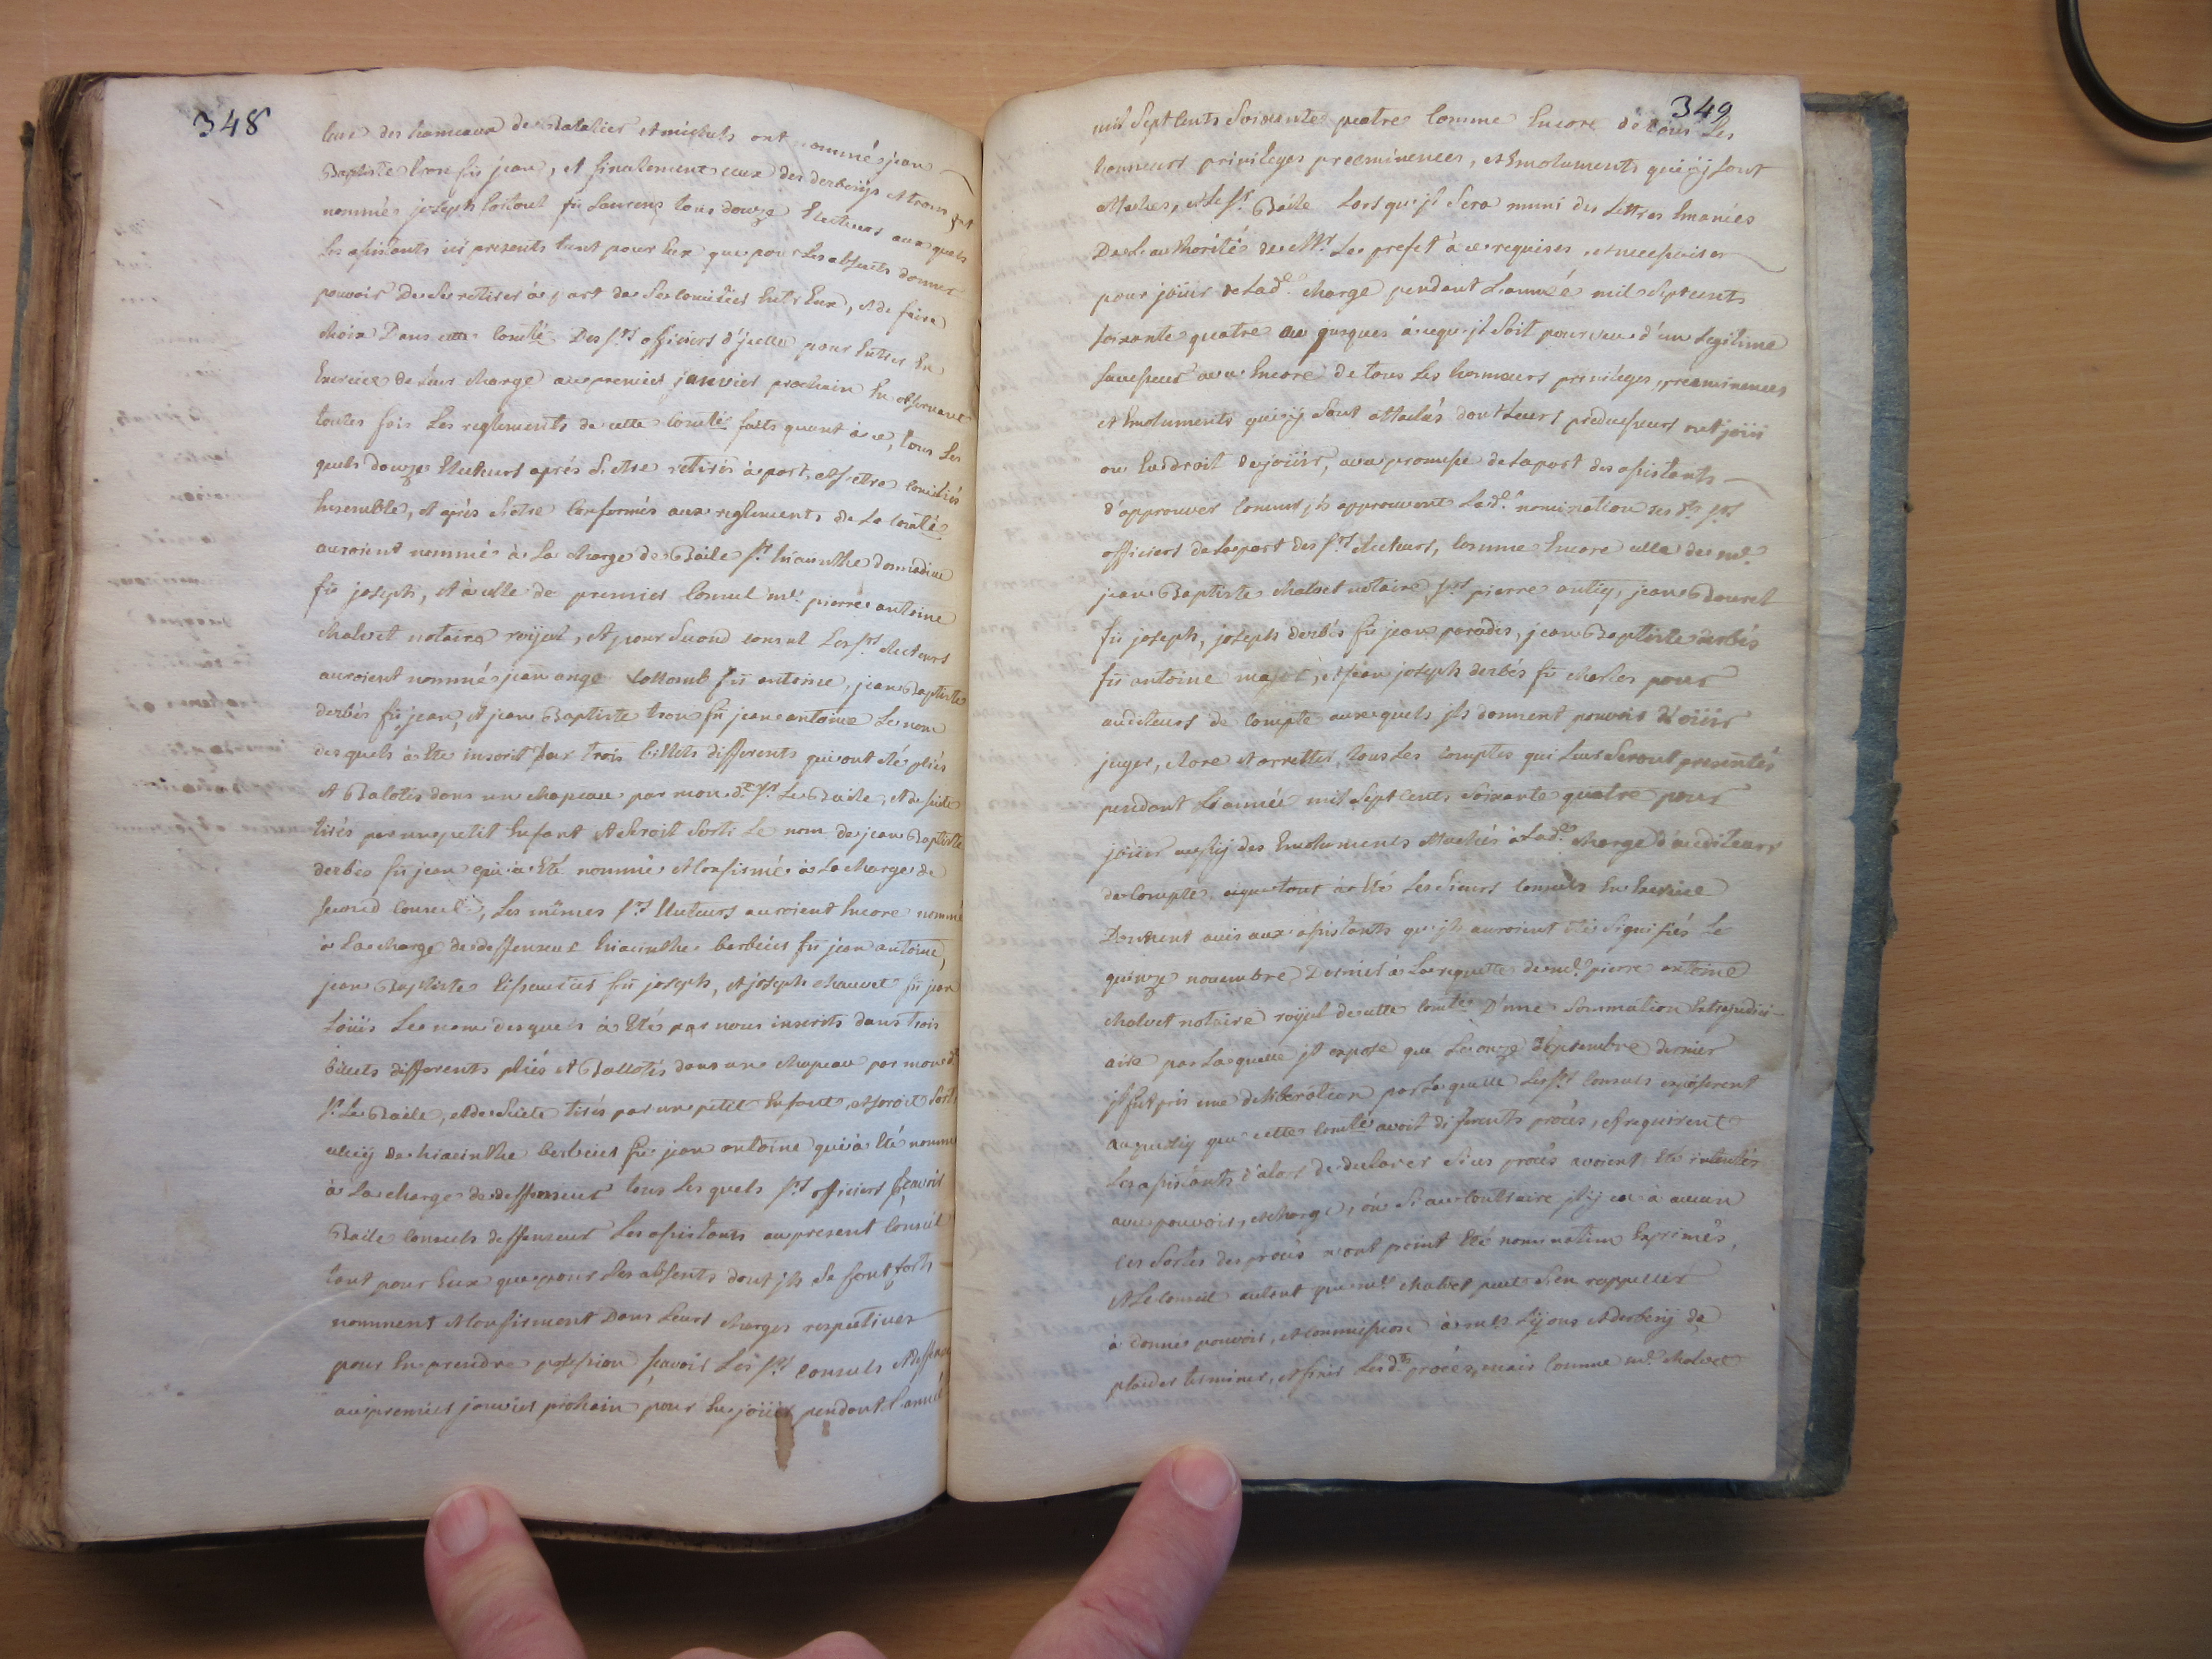 348
ceux des hameaux de Batalier et michels ont nommé jean
Baptiste tron fû jean, et finalement ceux des derbeiys et trons ont
nommés joseph foitoul fû Laurens tous douze Electeurs aux quels
Les assistants icÿ presents tant pour Eux que pour Les absents donnent
pouvoir De Se retirer à part de Se concilier Entr'Eux, et de faire
choix Dans cette comté Des srs officiers d'jcelle pour Entrer En
Exercice de Leur charge au premier janvier prochain En observant
toutes fois Les reglements de cette comté faits quant à ce, tous Les
quels douze Electeurs aprés S'etre retirés à part, et s'etre conciliés
Ensemble, et aprés S'etre conformés aux reglements de La comté
auroient nommé à La charge de Baile sr hiacinthe donnadieu
fû joseph, et à celle de premier Consul me pierre antoine
chalvet notaire roÿal, et pour Second consul Les srs electeurs
auroient nommé jean ange Collomb fû antoine, jean Baptiste
derbés fû jean, et jean Baptiste tron fû jean antoine Le nom
des quels à Eté inscrit sur trois billets differents qui ont eté pliés
et Balotés dans un chapeau par mon dt sr Le Baile, et de suite
tirés par un petit Enfant et Seroit Sorti Le nom de jean Baptiste
derbés fû jean qui à Eté nommé et Confirmé à La charge de
Second Consul, Les mêmes srs Electeurs auroient Encore nommé
à La charge de deffenseur hiacinthe berbeier fû jean antoine,
jean Baptiste Eissautier fû joseph, et joseph chauvet fû jean
Loüis Le nom des quels à Eté par nous inscrits dans trois
billets differents pliés et Ballotés dans un chapeau par mon dt
sr Le Baile, et de Suite tirés par un petit Enfant, et seroit Sorti
celuÿ de hiacinthe berbeier fû jean antoine qui à Eté nommé
à La charge de deffenseur tous Les quels srs officiers sçavoir
Baile Consuls deffenseur Les assistants au present Conseil
tant pour Eux que pour Les absents dont jls Se font forts
nomment et Confirment Dans Leurs charges respectives
pour En prendre possession sçavoir Les srs consuls et deffenseur
au premier janvier prochain pour En joüir pendant L'année
349
mil Sept Cents Soixante quatre Comme Encore de tous Les
honneurs privileges preeminences, et Emoluments qui ÿ sont
attachés, et Le sr Baile Lors qu'jl Sera muni des Lettres Emanées
De L'authorité de Mr Le prefet à ce requises, et necessaires
pour joüir de Lade charge pendant L'année mil Sept cents
soixante quatre ou jusques à ce qu'jl Soit pourveu d'un Legitime
Successeur avec Encore de tous Les honneurs privileges, preeminences
et Emoluments qui ÿ Sont attachés dont Leurs predecesseurs ont joüi
ou Eu droit de joüir, avec promesse de La part des assistants
d'approuver Comme jls approuvent Lade nomination des dts srs
officiers de La part des srs electeurs, Comme Encore celle de me
jean Baptiste chalvet notaire srs pierre antiq, jean Bouvet
fû joseph, joseph derbés fû jean paradis, jean Baptiste derbés
fû antoine major, et jean joseph derbés fû charles pour
auditeurs de Compte aux quels jls donnent pouvoir d'oüir
juger, clore et arretter tous Les comptes qui Leur Seront presentés
pendant L'année mil Sept Cent, Soixante quatre pour
joüir aussÿ des Emoluments attachés à Lade charge d'auditeurs
de Compte, aiquetout à Eté Les Sieurs Consuls En Exercice
Donnent avis aux assistants qu'jls auroient Eté Signifiés Le
quinze novembre Dernier à La requette de me pierre antoine
chalvet notaire roÿal de cette comté D'une Sommation Extrajudici-
aire par La quelle jl expose que Le onze Septembre dernier
jl fut pris une deliberation par La quelle Les srs Consuls exposerent
que cette comté avoit diferents procés, et requirent
Les assistants d'alors de declarer Si ces procés avoient Eté intentés
avec pouvoir, et charge, ou Si au Contraire jl ÿ en à aucun
Ces Sortes des procés n'ont point Eté nommatim Exprimés,
et Le Conseil autant que me chalvet peut S'en rappeller
à donné pouvoir, et Commission à mes Lÿons et derbeiÿ de
plaider terminer, et finir Lesdts procés, mais Comme me chalvet